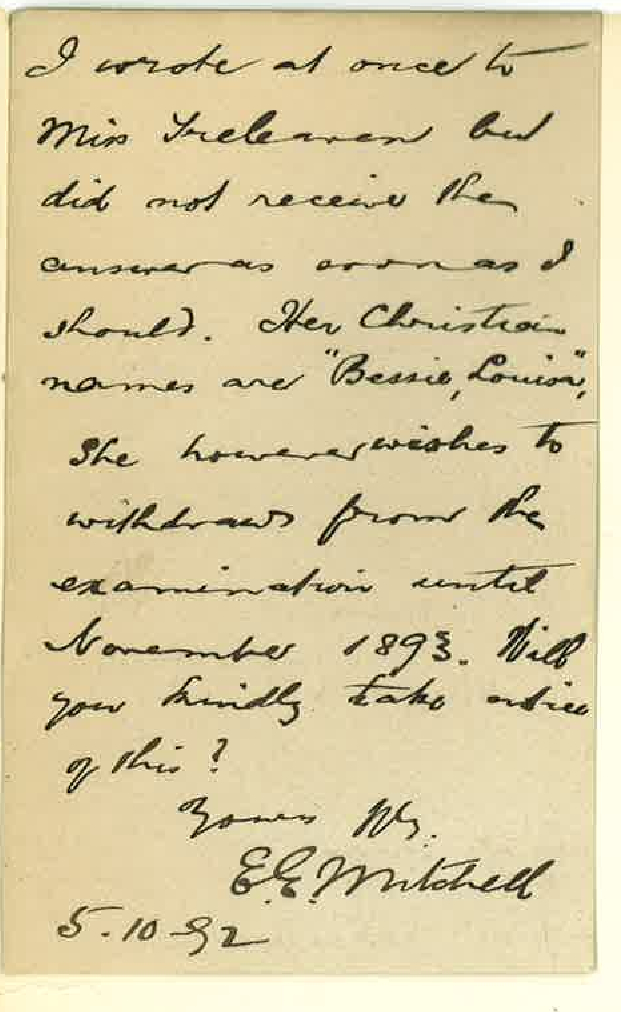 I wrote at once to
Miss Treleaven but
did not receive the
answer as soon as I
should. Her Christian
names are "Bessie, Louisa",
She however wishes to
withdraw from the
examination until
November 1893. Will
you kindly take notice
of this?
Yours
E.E. Mitchell
5.10.92